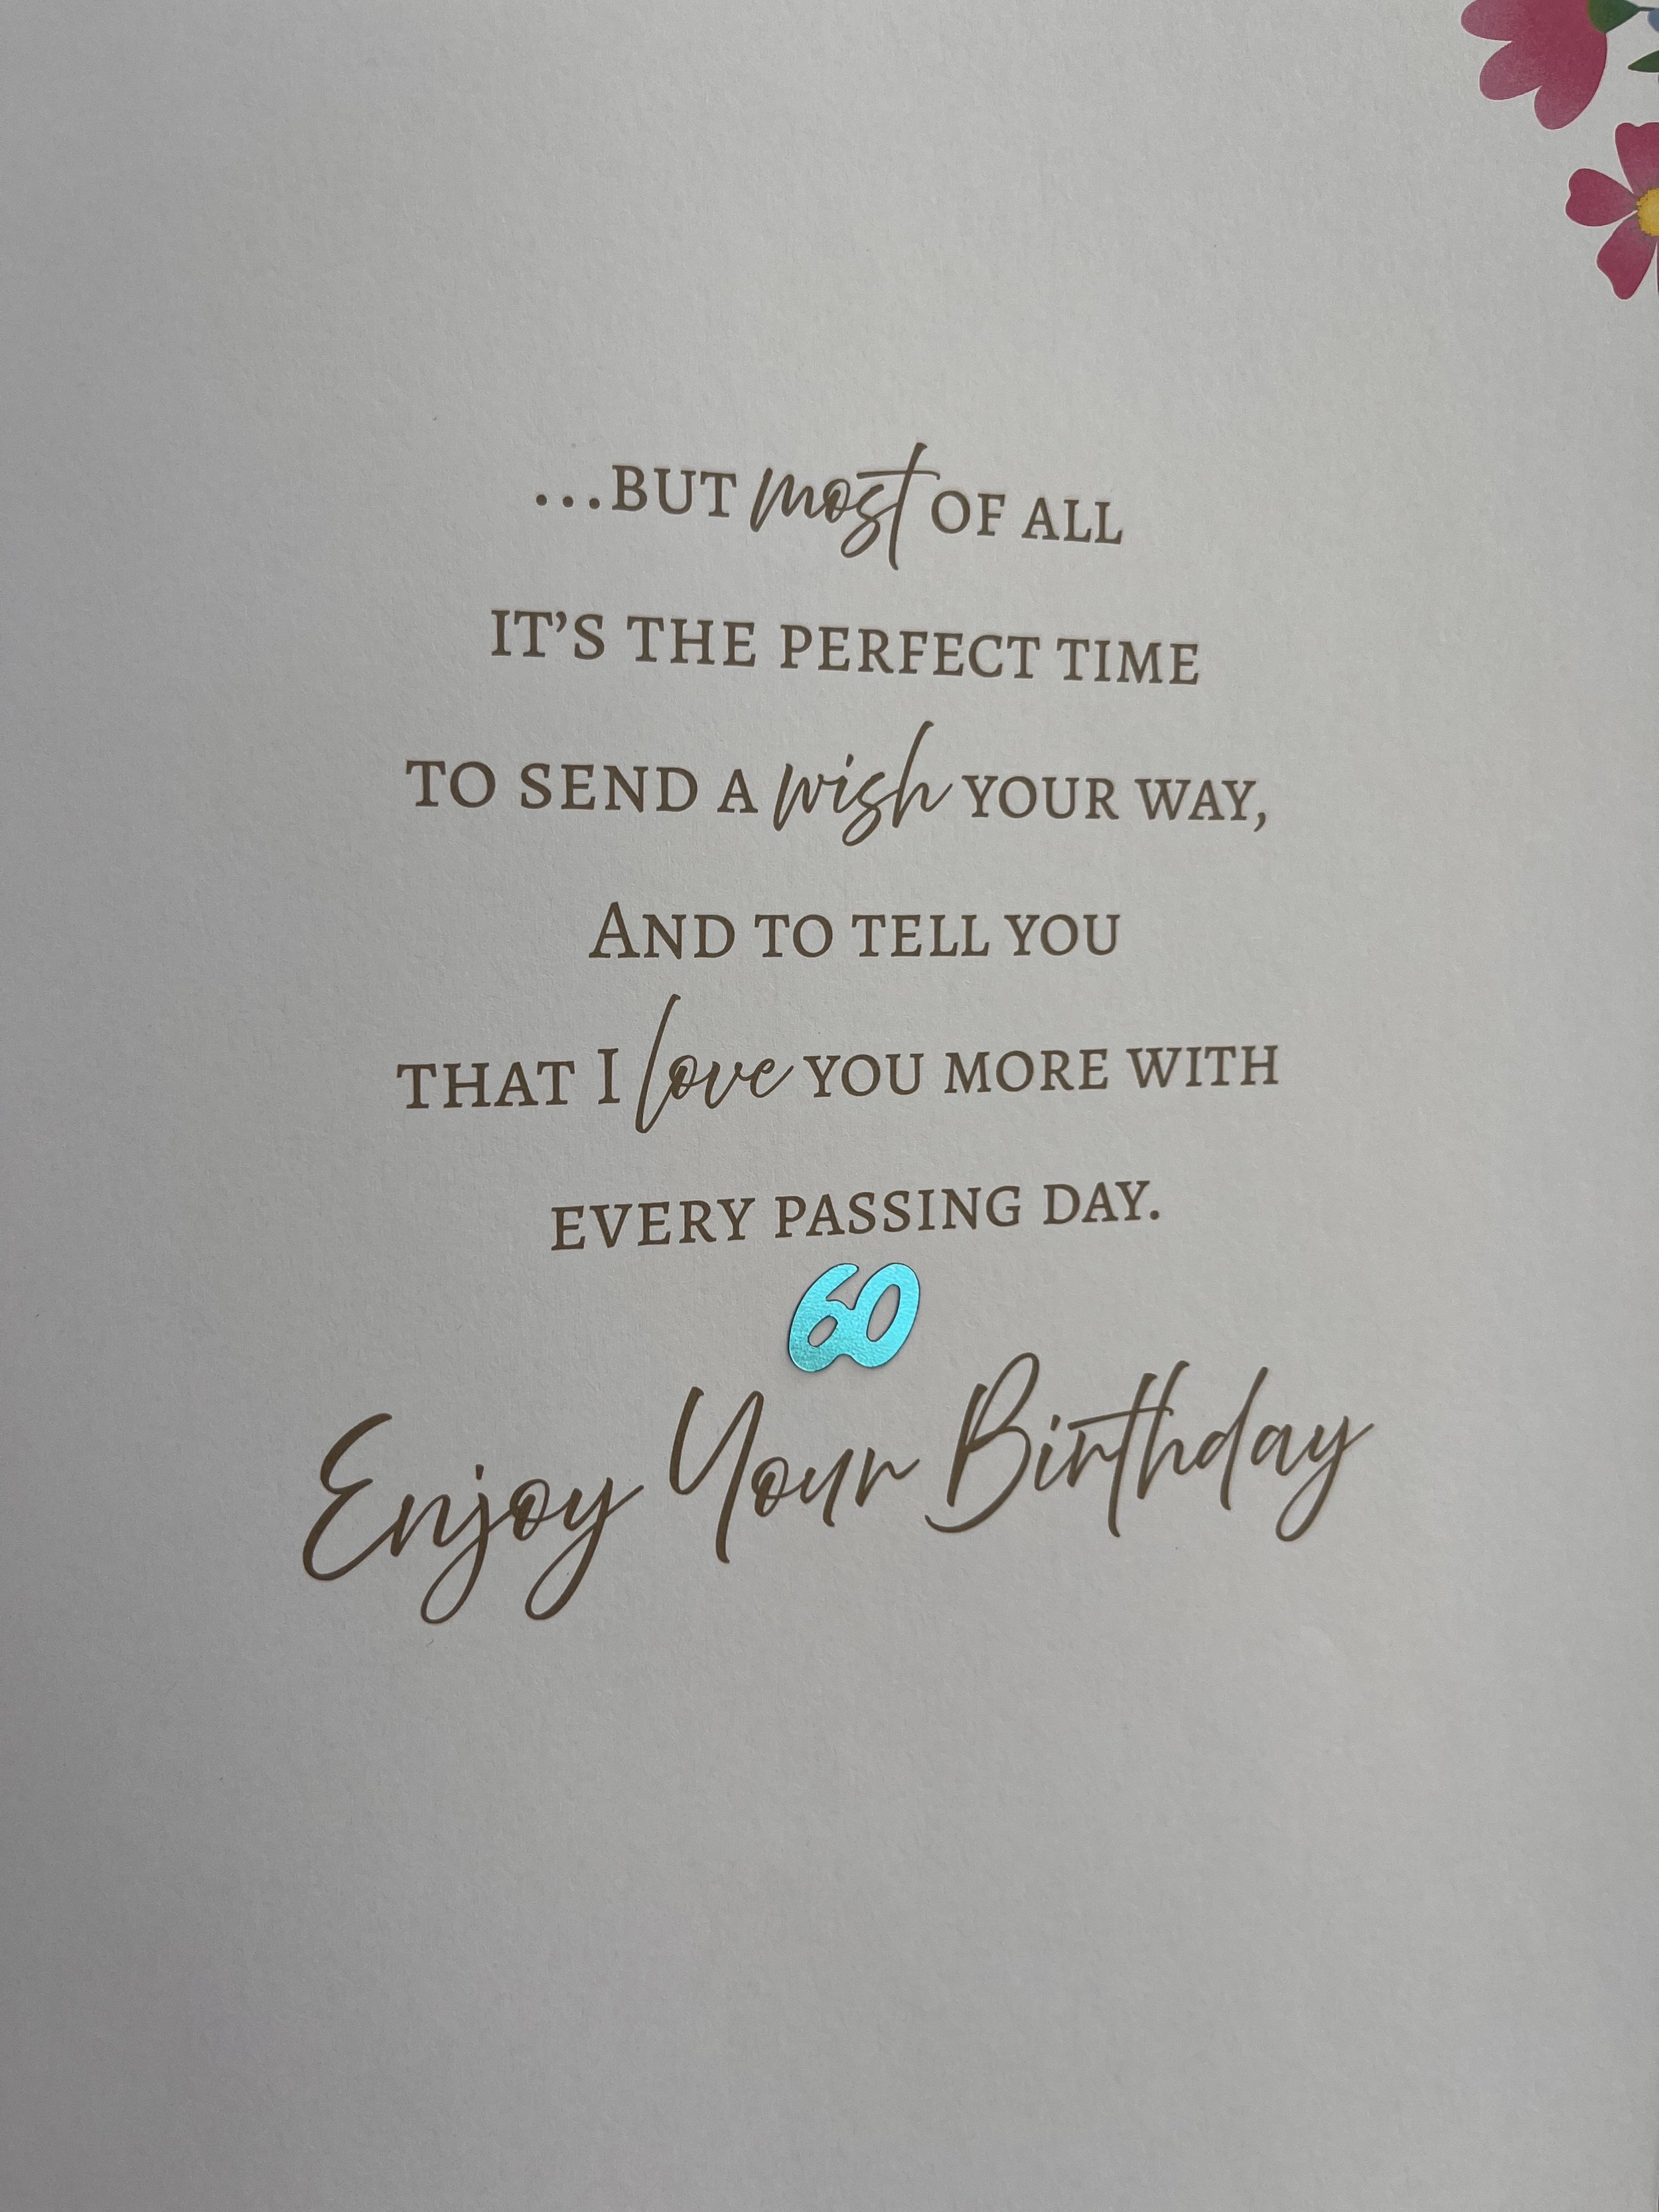 ...BUT most OF ALL
IT’S THE PERFECT TIME
TO SEND A wish YOUR WAY,
AND TO TELL YOU
THAT I love YOU MORE WITH
EVERY PASSING DAY.
60
Enjoy Your Birthday